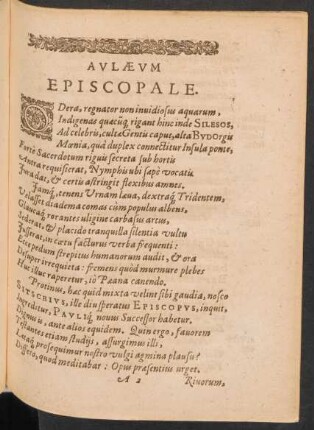 AVLÆVM
EPISCOPALE.
ODera, regnator non invidiosus aquarum,
Indigenas quacūq, rigant hinc inde SILESOS,
Ad celebris, culta Gentis caput, alta BVDORgis
Mœnia, quà duplex connectitur Insula ponte,
Fortè Sacerdotum riguis secreta sub hortis
Antra requisierat, Nymphis ubi sæpè vocatis
Jura dat, & certis astringit flexibus amnes.
Jamq, tenens Urnam læva, dextraq, Tridentem,
diadema comas cùm populus albens,
Glaucaq, rorantes uligine carbasus artus,
Sederat, & placido tranquilla silentia vultu
Jusserat, in cœtu facturus verba frequenti:
Ecce pedum strepitus humanorum audit, & ora
Desuper irrequieta: fremens quòd murmure plebes
Huc illuc raperetur, iô Pæana canendo.
Protinus, hæc quid mixta velint sibi gaudia, nosco
SITSCHIVS, ille diu speratus EPISCOPVS, inquit,
Ingreditur, PAVLIq, novus Successor habetur.
Dignus is, ante alios equidem. Quin ergo, favorem
Testantes etiam studijs, assurgimus illi,
Lætaq, prosequimur nostro vulgi agmina plausu?
Digero, quod meditabar: Opus præsentius urget.
A 2 Rivorum,